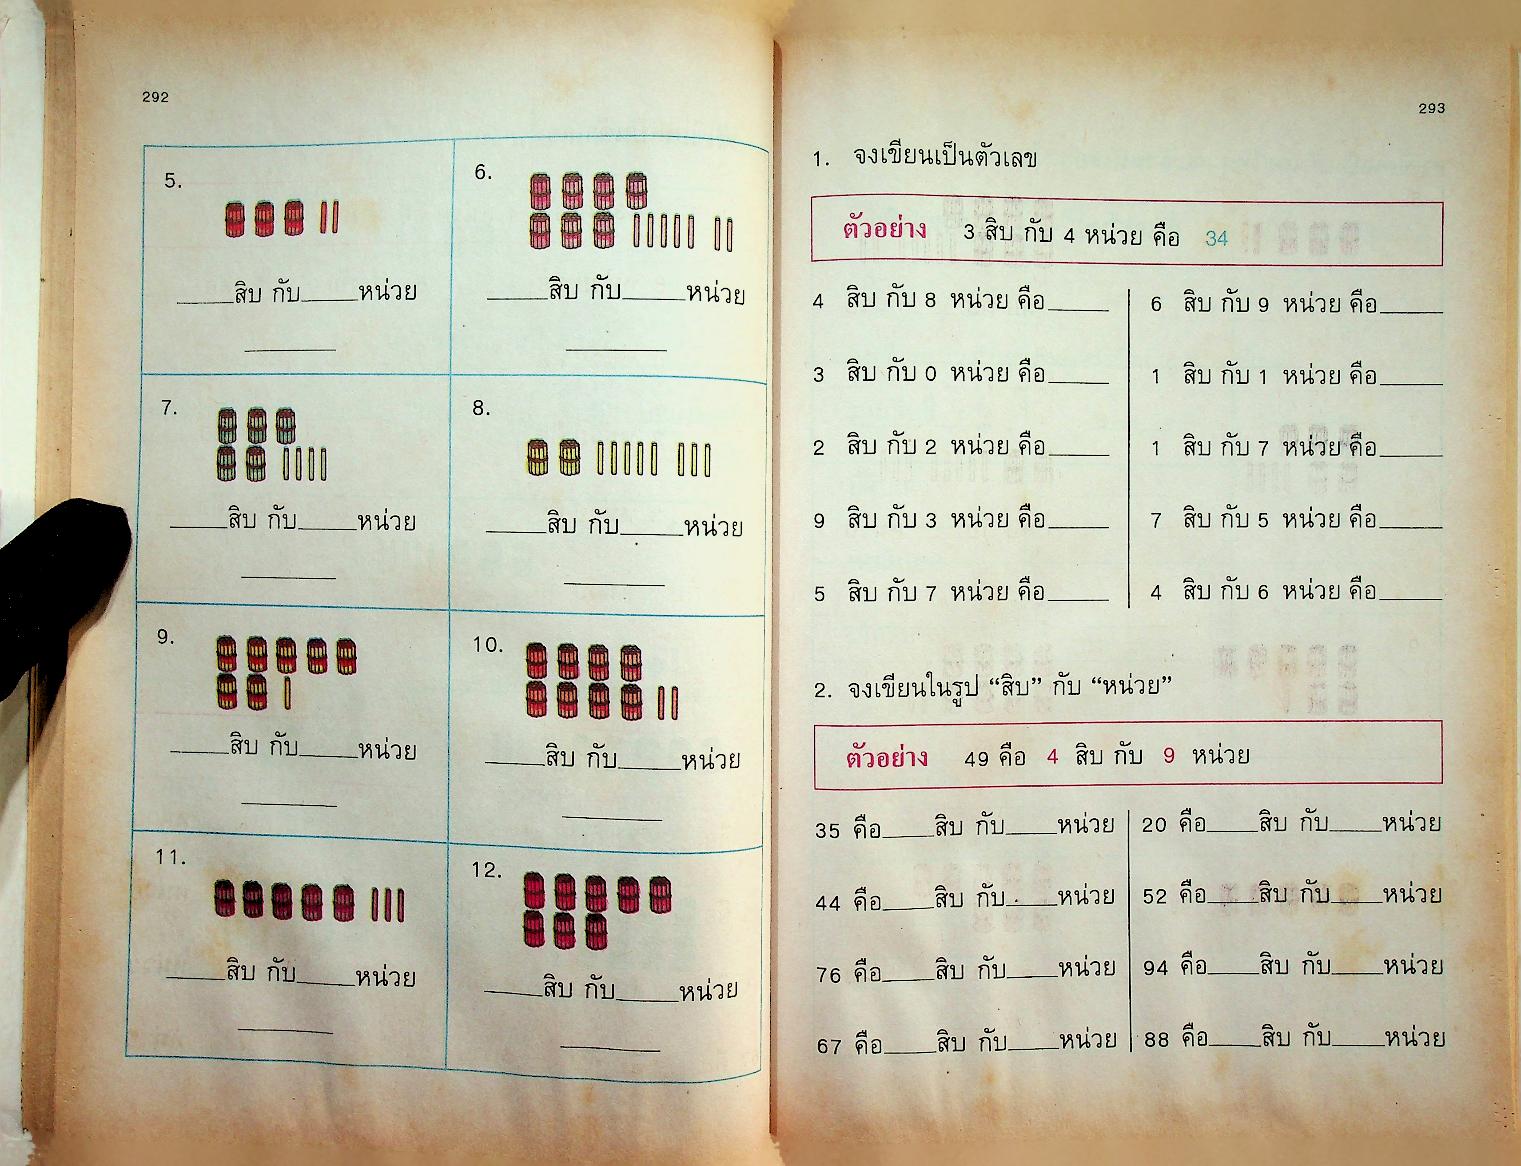 292
5.
_____สิบ กับ_____หน่วย
6.
_____สิบ กับ_____หน่วย
7.
_____สิบ กับ_____หน่วย
8.
_____สิบ กับ_____หน่วย
9.
_____สิบ กับ_____หน่วย
10.
_____สิบ กับ_____หน่วย
11.
_____สิบ กับ_____หน่วย
12.
_____สิบ กับ_____หน่วย
293
1. จงเขียนเป็นตัวเลข
ตัวอย่าง 3 สิบ กับ 4 หน่วย คือ 34
4 สิบ กับ 8 หน่วย คือ_____
3 สิบ กับ 0 หน่วย คือ_____
2 สิบ กับ 2 หน่วย คือ_____
9 สิบ กับ 3 หน่วย คือ_____
5 สิบ กับ 7 หน่วย คือ_____
6 สิบ กับ 9 หน่วย คือ_____
1 สิบ กับ 1 หน่วย คือ_____
1 สิบ กับ 7 หน่วย คือ_____
7 สิบ กับ 5 หน่วย คือ_____
4 สิบ กับ 6 หน่วย คือ_____
2. จงเขียนในรูป “สิบ” กับ “หน่วย”
ตัวอย่าง 49 คือ 4 สิบ กับ 9 หน่วย
35 คือ____สิบ กับ____หน่วย
44 คือ____สิบ กับ____หน่วย
76 คือ____สิบ กับ____หน่วย
67 คือ____สิบ กับ____หน่วย
20 คือ____สิบ กับ____หน่วย
52 คือ____สิบ กับ____หน่วย
94 คือ____สิบ กับ____หน่วย
88 คือ____สิบ กับ____หน่วย